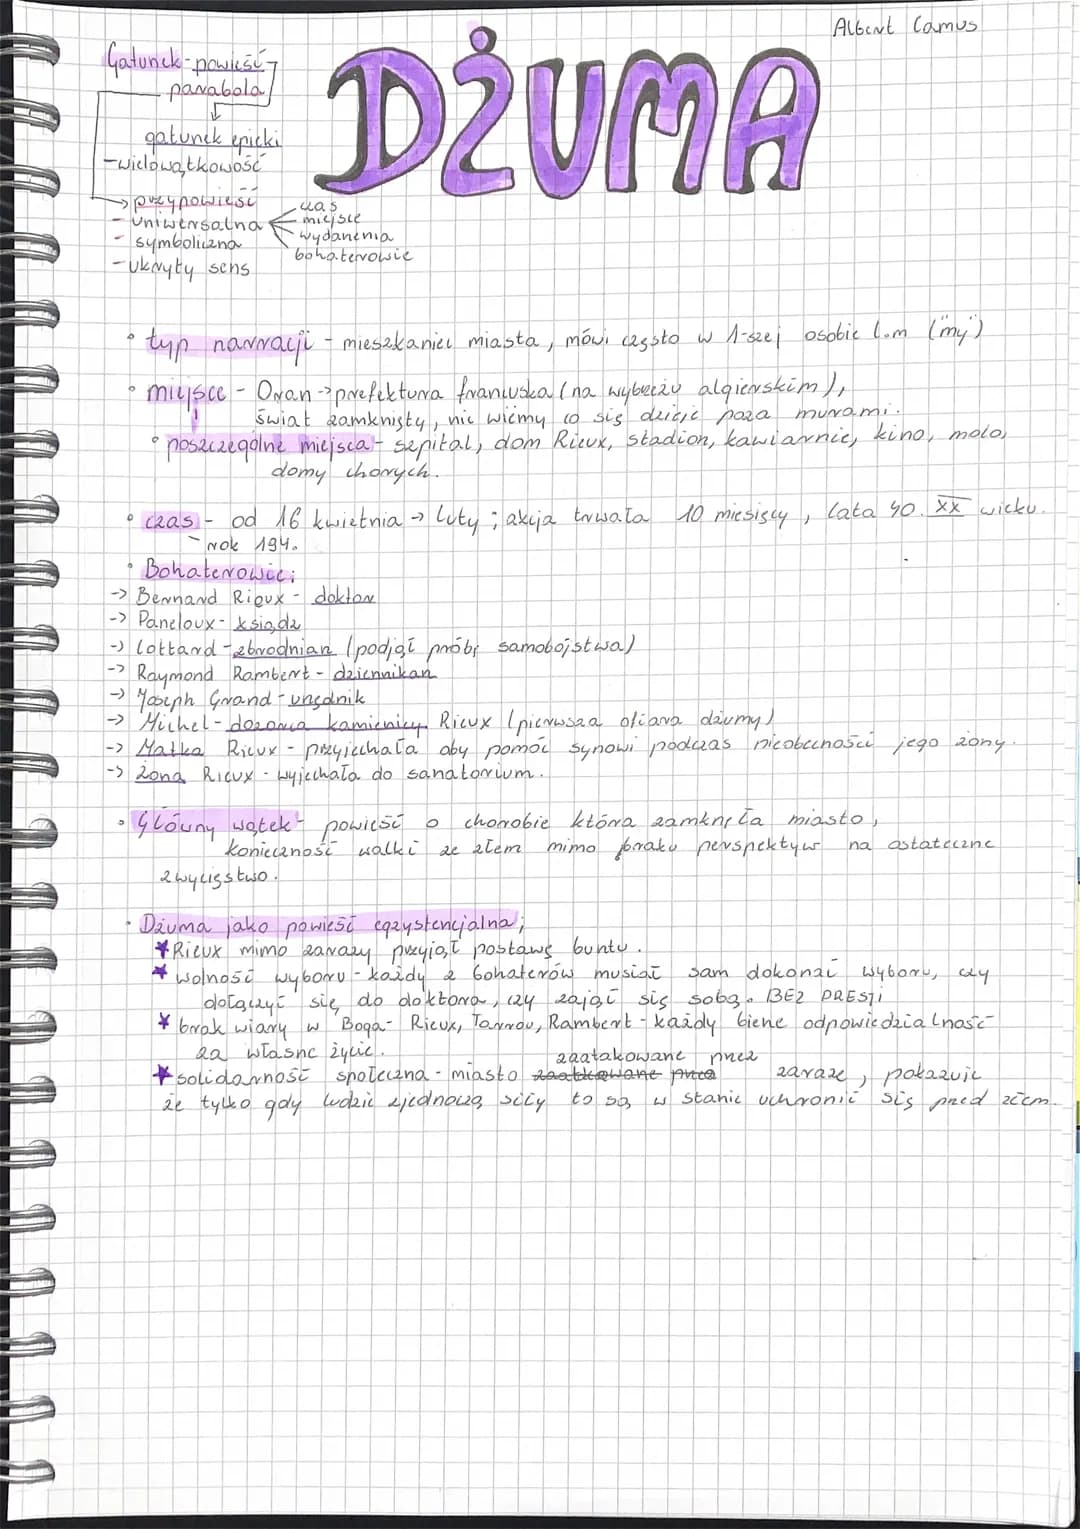 Albert Camus
DŻUMA
Gatunek - powieść
parabola
gatunek epicki
- wielowątkowość
przypowieść
- uniwersalna
- symboliczna
- ukryty sens
czas
miejsce
wydarzenia
bohaterowie
• typ narracji - mieszkaniec miasta, mówi często w 1-szej osobie l.m ("my")
• miejsce - Oran -> prefektura francuska (na wybrzeżu algierskim),
świat zamknięty, nie wiemy co się dzieje poza murami.
• poszczególne miejsca - szpital, dom Rieux, stadion, kawiarnie, kino, molo,
domy chorych.
• czas - od 16 kwietnia -> luty ; akcja trwała 10 miesięcy, lata 40. XX wieku.
- rok 194.
• Bohaterowie:
-> Bernard Rieux - doktor
-> Paneloux - ksiądz
-> Cottard - zbrodniarz (podjął próbę samobójstwa)
-> Raymond Rambert - dziennikarz
-> Joseph Grand - urzędnik
-> Michel - dozorca kamienicy Rieux (pierwsza ofiara dżumy)
-> Matka Rieux - przyjechała aby pomóc synowi podczas nieobecności jego żony.
-> żona Rieux - wyjechała do sanatorium.
• Główny wątek - powieść o chorobie która zamknęła miasto,
konieczność walki ze złem mimo braku perspektyw na ostateczne
zwycięstwo.
• Dżuma jako powieść egzystencjalna;
★ Rieux mimo zarazy przyjął postawę buntu.
★ wolność wyboru - każdy z bohaterów musiał sam dokonać wyboru, czy
dołączyć się do doktora, czy zająć się sobą. BEZ PRESJI
★ brak wiary w Boga - Rieux, Tarrou, Rambert - każdy bierze odpowiedzialność
za własne życie.
★ solidarność społeczna - miasto zaatakowane przez zarazę, pokazuje
że tylko gdy ludzie zjednoczą siły to są w stanie uchronić się przed złem.